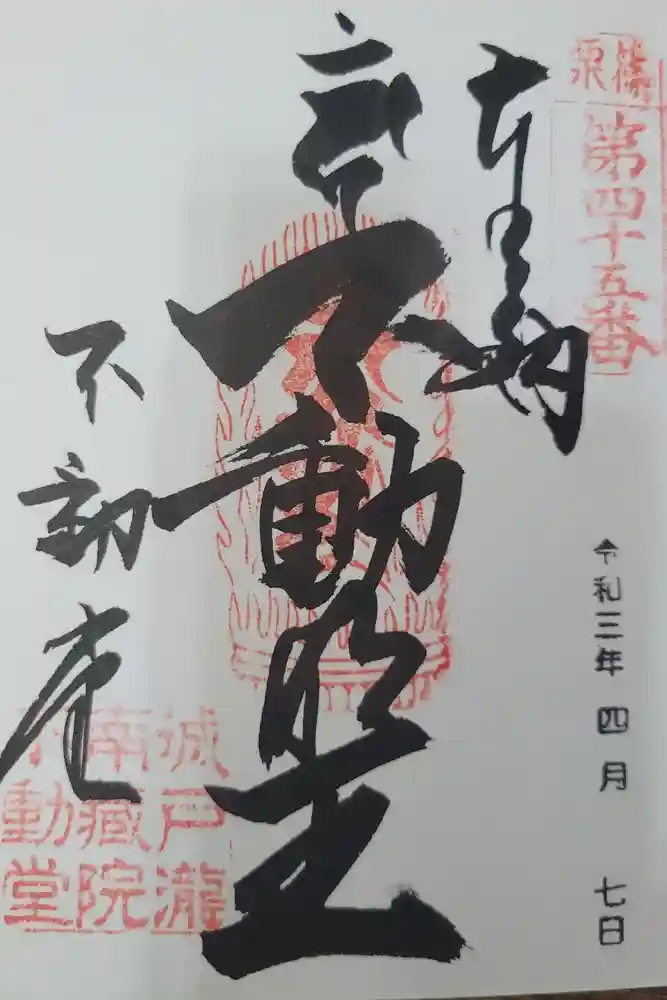 篠栗
第四十五番
奉納
令和三年 四月 七日
不動明王
不動堂
城戸瀧
南藏院
不動堂